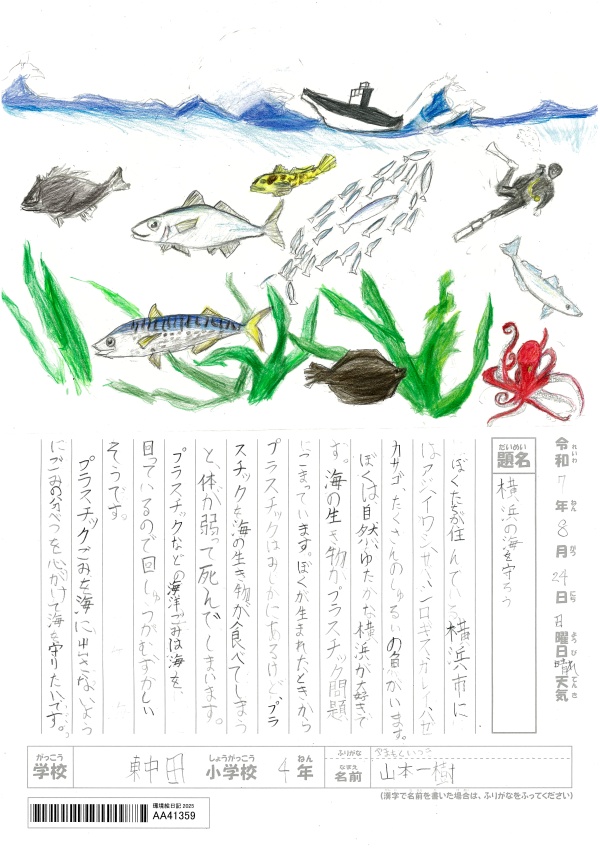 令和7年8月24日日曜日晴れ天気
れいわ ねん がつ にち ようび てんき
だいめい
題名
横浜の海を守ろう
ぼくたちが住んでいる横浜市に
はアジ、イワシ、サバ、シロギス、カレイ、ハゼ
カサゴ、たくさんのしゅるいの魚がいます。
ぼくは自然がゆたかな横浜が大好きで
す。海の生き物がプラスチック問題
にこまっています。ぼくが生まれたときから
プラスチックはみぢかにあるけど、プラ
スチックを海の生き物が食べてしまう
と、体が弱って死んでしまいます。
プラスチックなどの海洋ごみは海を
回っているので回しゅうがむずかしい
そうです。
プラスチックごみを海に出さないよう
にごみの分べつを心がけて海を守りたいです。
がっこう
学校
東中田
しょうがっこう
小学校
4
ねん
年
ふりがな
なまえ
名前
やまもといつき
山本一樹
(漢字で名前を書いた場合は、ふりがなをふってください)
環境絵日記 2025
AA41359